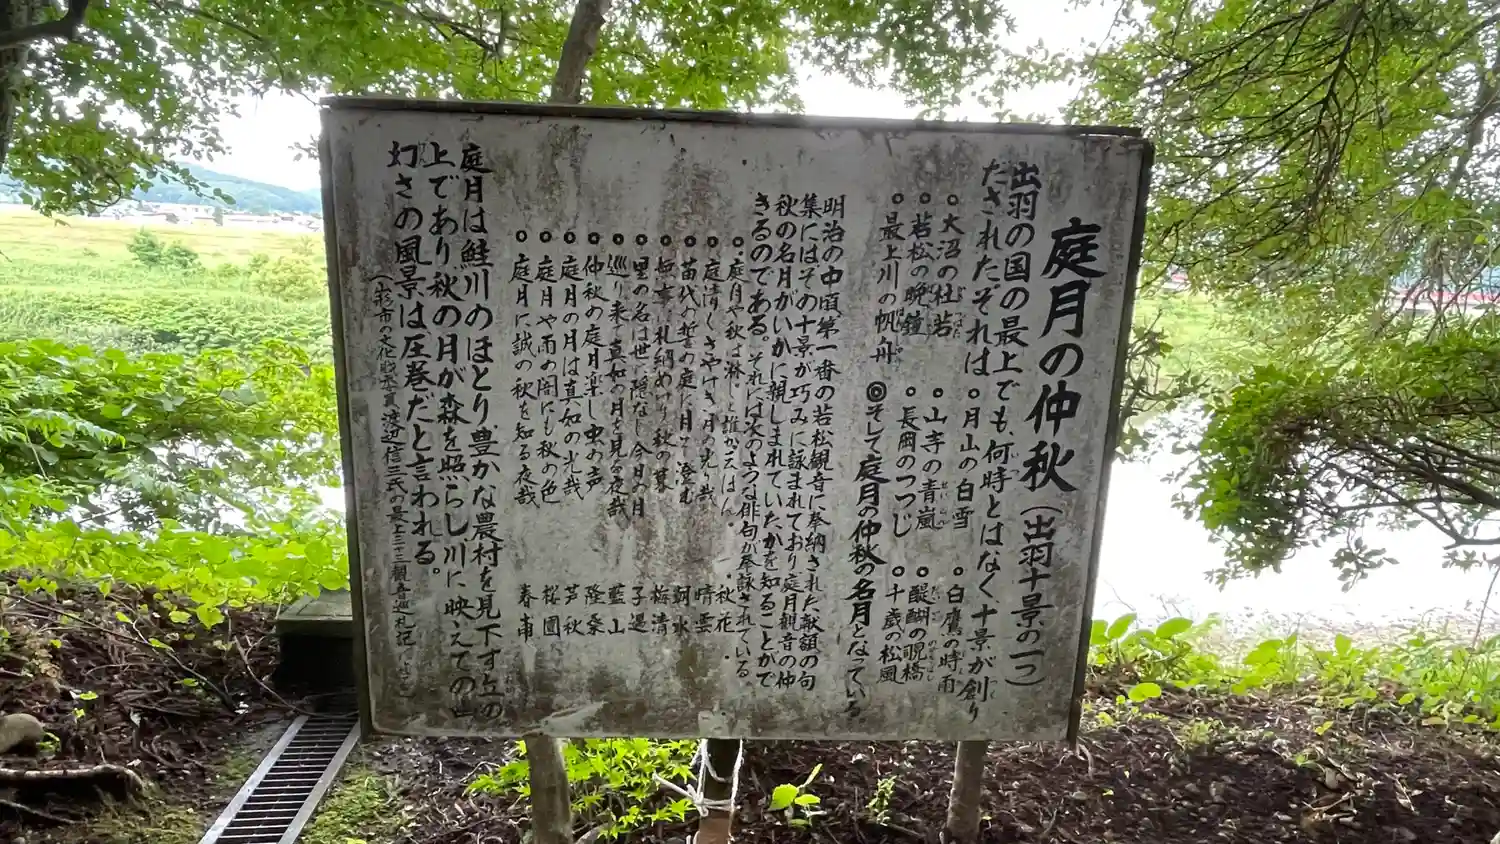 庭月の仲秋(出羽十景の一つ)
出羽の国の最上でも何時とはなく十景が創り
だされたそれは
月山の白雪
白鷹の時雨
大沼の杜若
山寺の青嵐
醍醐の覗橋
若松の晩鐘
長岡のつつじ
千歳の松風
最上川の帆舟
◎そして庭月の仲秋の名月となっている
明治の中頃第一番の若松観音に奉納された献額の句
集にはその十景が巧みに詠まれており庭月観音の仲
秋の名月がいかに親しまれていたかを知ることがで
きるのである。それには次のような俳句が奉詠されている。
庭月や秋は淋しと誰か云はん 秋花
庭清くさやけき月の光り哉 晴雲
苗代の誓の庭に月 澄む
札納めけり秋の暮 梅清
里の名は世に隠なし今日の月 子遷
巡り来て真如の月を見る夜哉 藍山
仲秋の庭月楽し虫の声 隆桑
庭月の月は真如の光哉 芦秋
庭月や雨の闇にも秋の色 桜園
庭月に誠の秋を知る夜哉 春甫
庭月は鮭川のほとり、豊かな農村を見下す丘の
上であり秋の月が森を照らし川に映えての
幻さの風景は圧巻だと言われる。
(山形市の文化財委員渡辺信三氏の最上三十三観音巡礼記